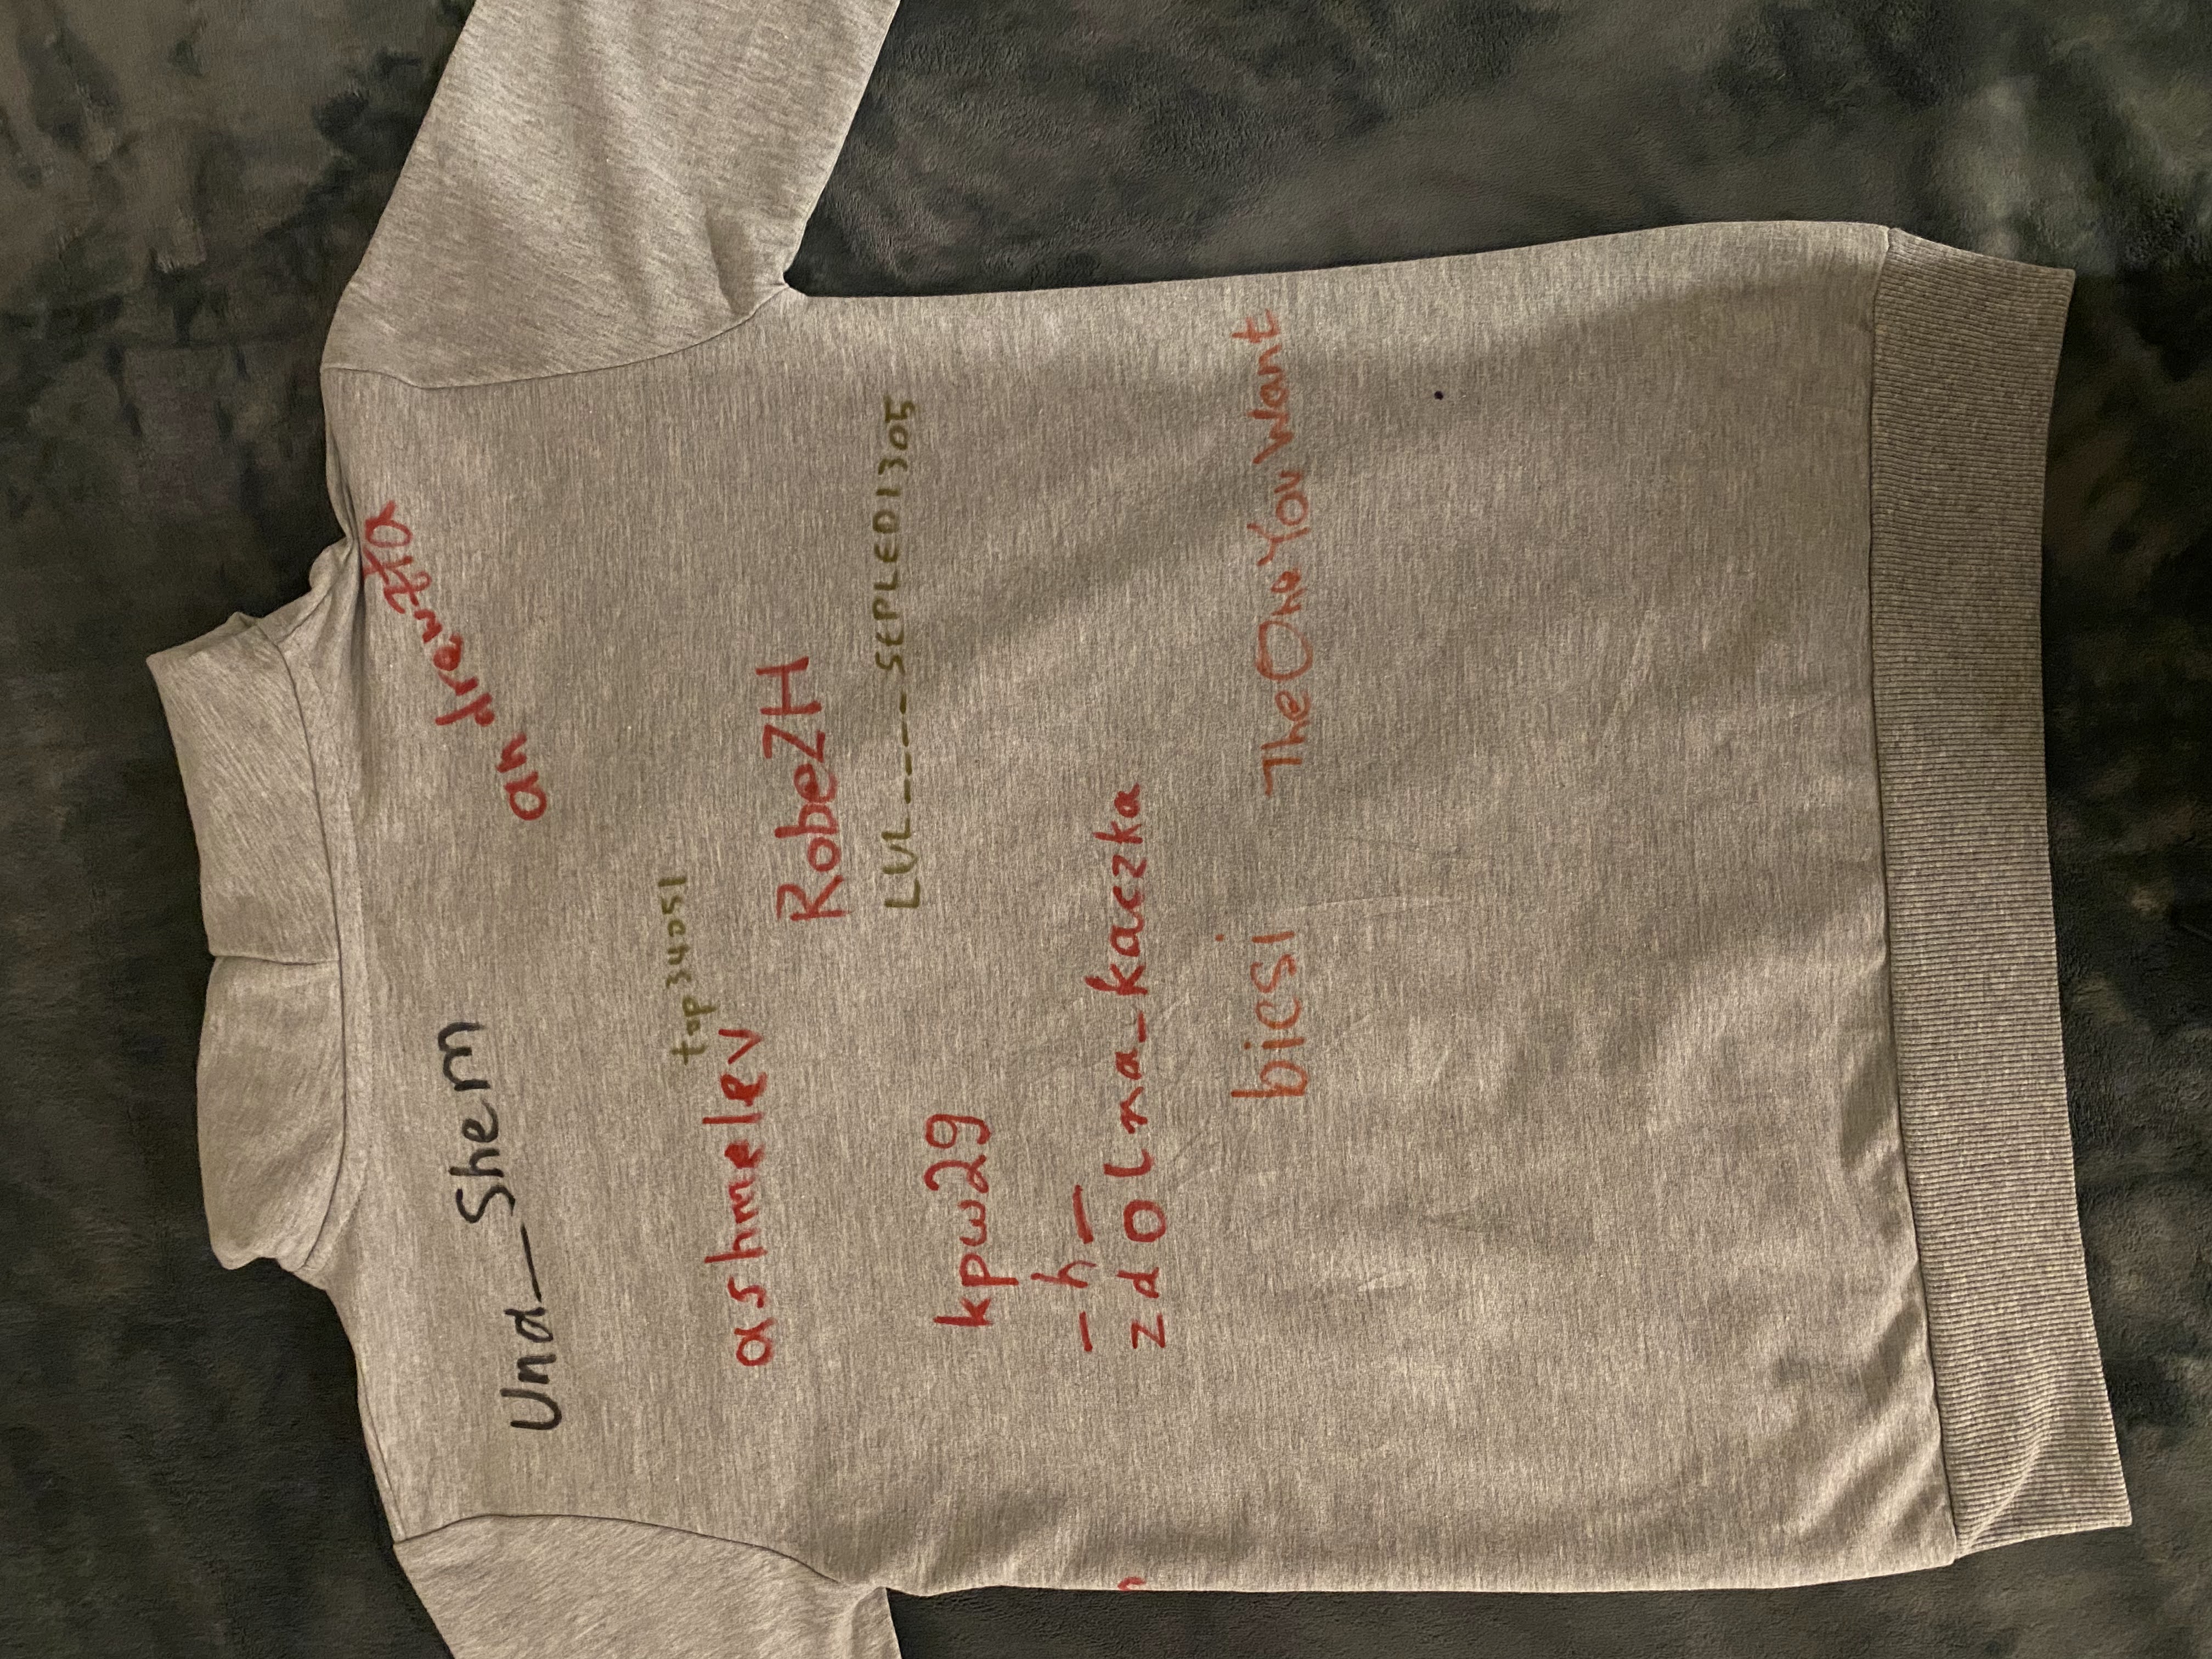 Una__Shem
andrewzta
top34051
ashmelev
RobeZH
LUL____SEPLED1305
kpw29
_h_
zdolna_kaczka
bicsi
TheOneYouWant